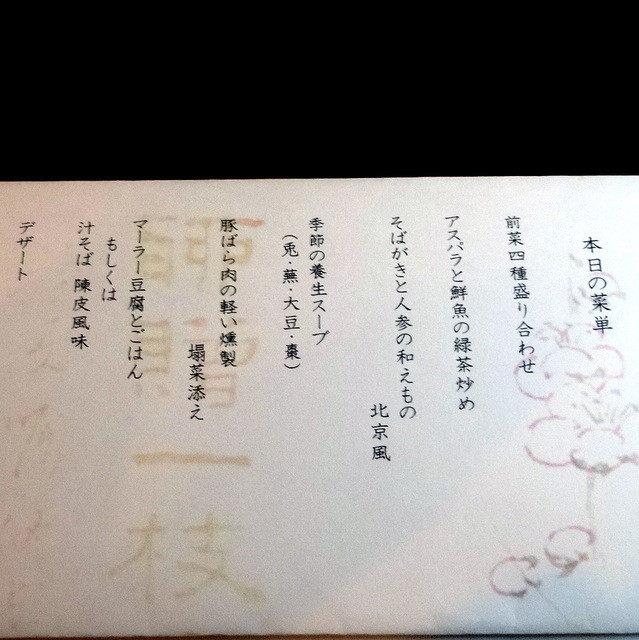 本日の菜単
前菜四種盛り合わせ
アスパラと鮮魚の緑茶炒め
そばがきと人参の和えもの
北京風
季節の養生スープ
(兎・蕪・大豆・棗)
豚ばら肉の軽い燻製
塌菜添え
マーラー豆腐とごはん
もしくは
汁そば 陳皮風味
デザート
一枝